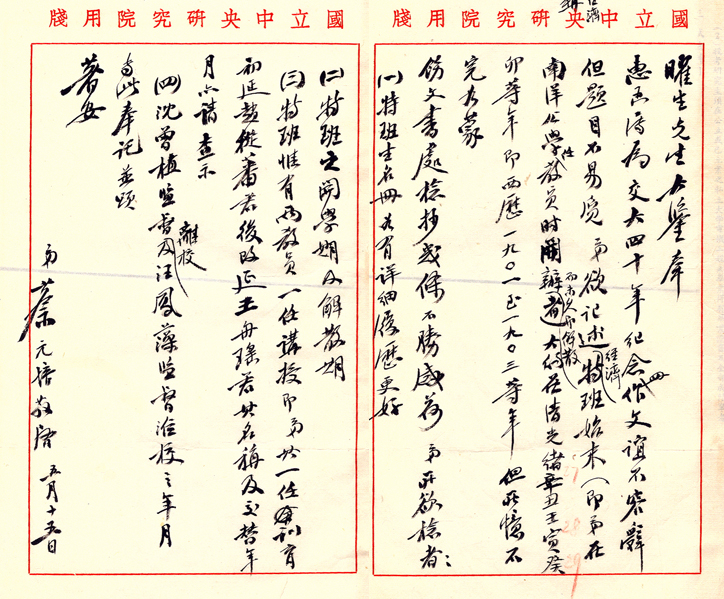 國立中央研究院用牋
曜生先生大鑒奉
惠函為交大四十年紀念作文誼不容辭
但題目不易覓弟欲記述經濟特班始末(即弟在
南洋公學任教員時開辦者而未久即解散大約在清光緒辛丑壬寅癸
卯等年即西歷一九〇一至一九〇三等年但所憶不
完如蒙
飭文書處檢抄或條不勝感荷弟所欲檢者:
(一)特班生名冊如有詳細履歷更好
國立中央研究院用牋
(二)特班之開學期及解散期
(三)特班惟有兩教員一任講授即弟其一任訓育
初延趙從蕃君後改延王舟瑤君其名稱及交替年
月亦請查示
(四)沈曾植監督及汪鳳藻監督離校之年月
專此奉託並頌
著安
弟蔡元培敬啓五月十五日